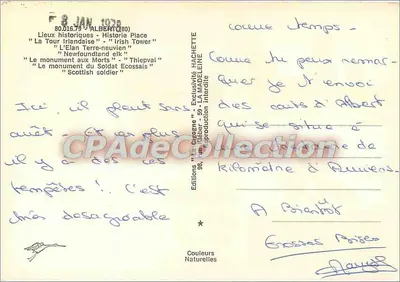 8 JAN. 1979
80.016.79 - ALBERT (80)
Lieux historiques - Historie Place
"La Tour Irlandaise" - "Irish Tower"
"L'Elan Terre-neuvien"
"Newfoundland elk"
"Le monument aux Morts" - "Thiepval"
"Le monument du Soldat Ecossais"
"Scottish soldier"
Ici, il pleut sans
arrêt - Et en plus
il y a des
tempêtes !. C'est
très désagréable
Editions "La Cigogne" - Exclusivité HACHETTE
59 - LA MADELEINE
reproduction interdite
Couleurs
Naturelles
comme temps -
Comme tu peux remar-
quer je t'envoi
des carts d'Albert
qui se situe à
kilomètre d'Amiens
A Bientôt
Grosses Bises
CPAdeCollection